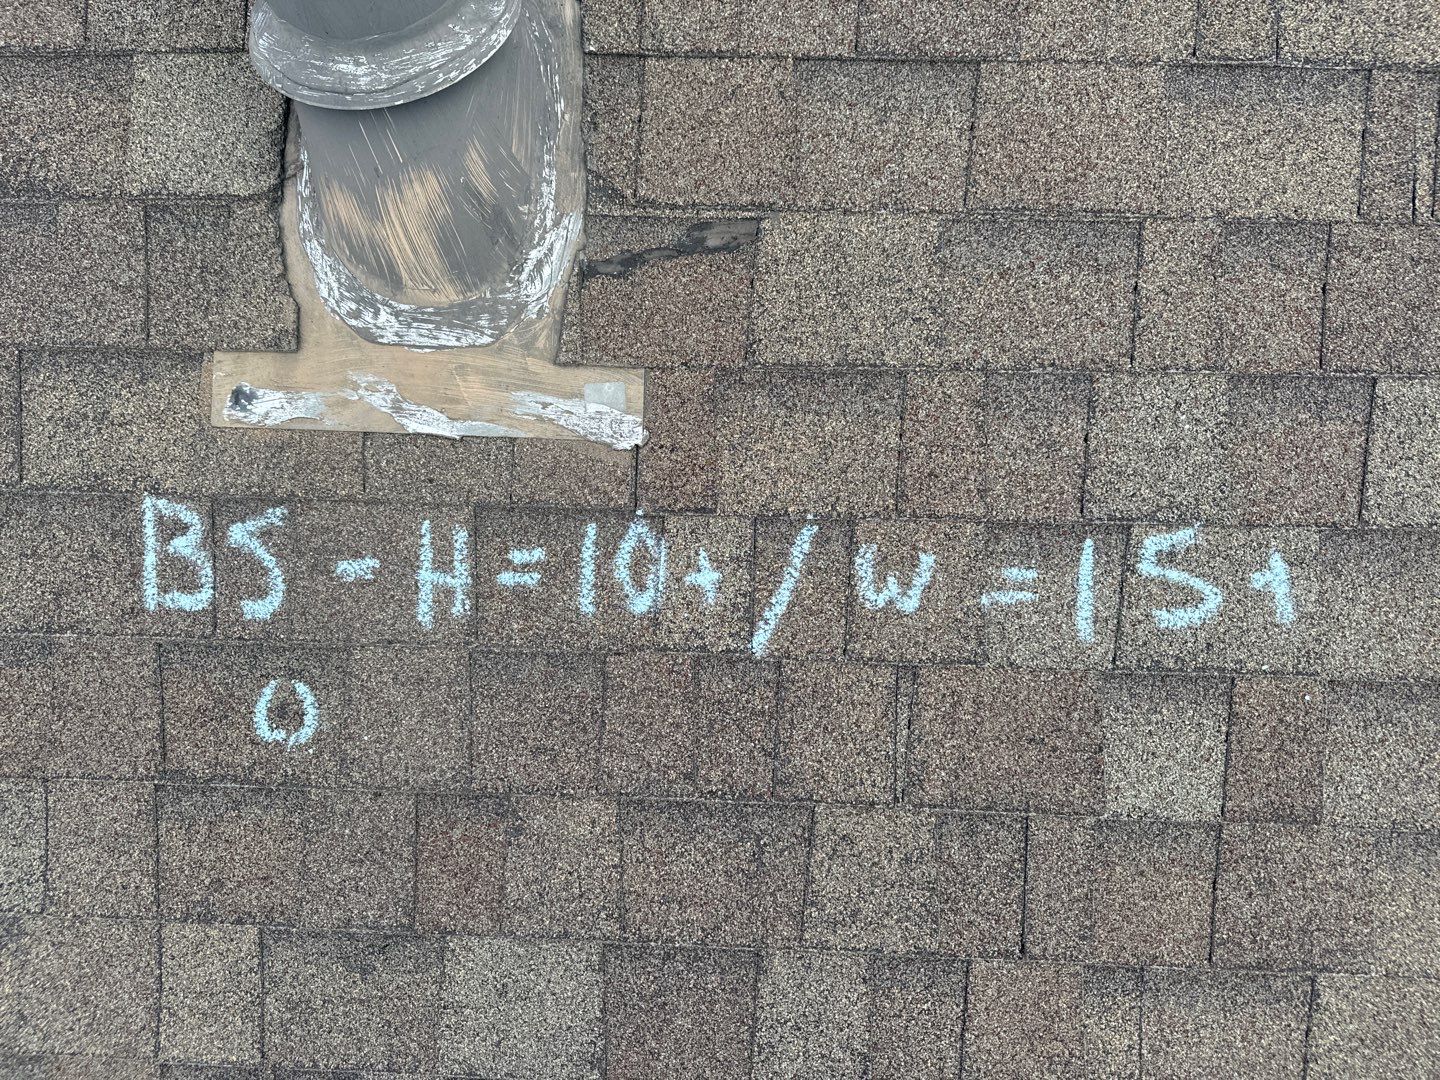 BS - H = 10+ / W = 15+
0